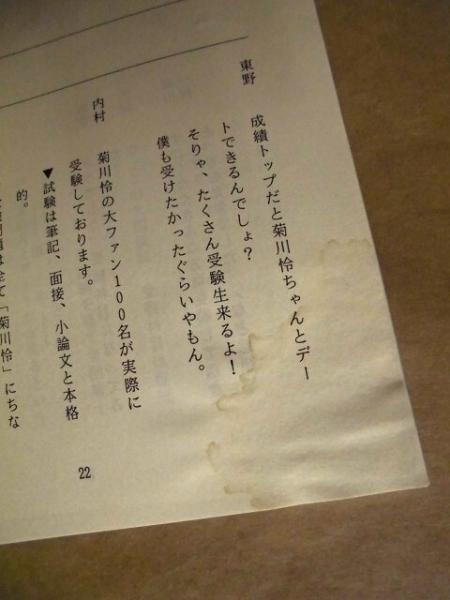 東野
成績トップだと菊川怜ちゃんとデー
トできるんでしょ？
そりゃ、たくさん受験生来るよ！
僕も受けたかったぐらいやもん。
内村
菊川怜の大ファン100名が実際に
受験しております。
▼試験は筆記、面接、小論文と本格
的。
は全て「菊川怜」にちな
22